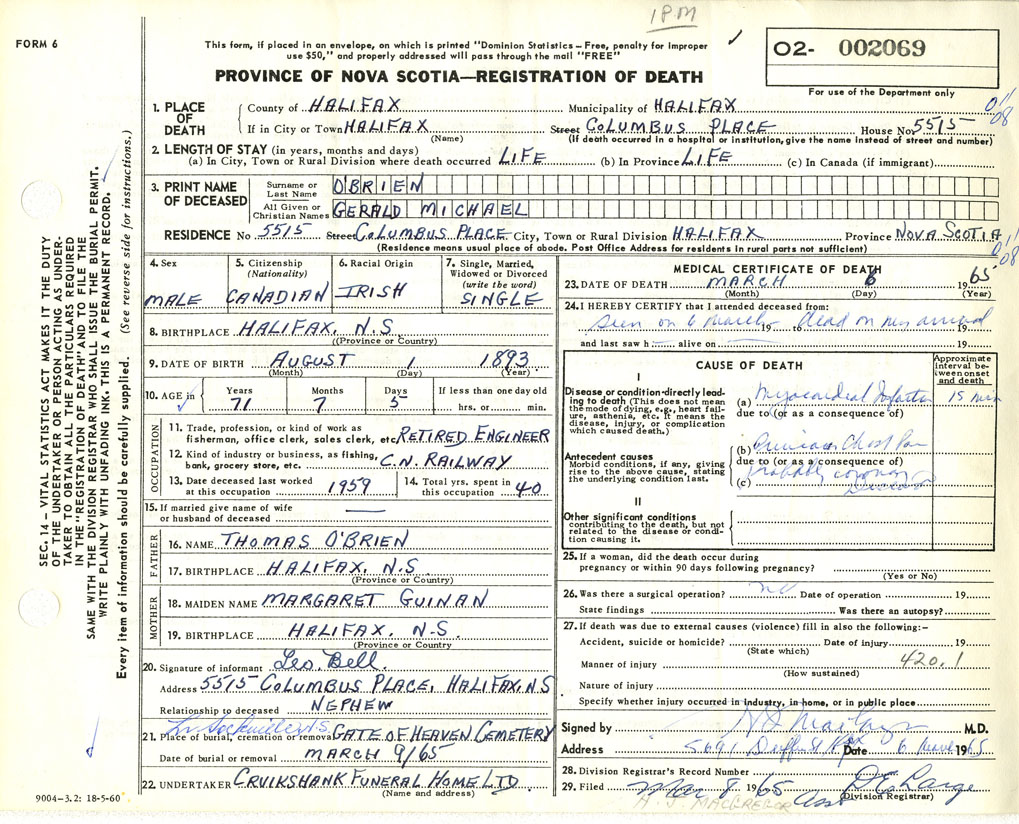 1 PM
FORM 6
This form, if placed in an envelope, on which is printed "Dominion Statistics – Free, penalty for improper
use $50," and properly addressed will pass through the mail "FREE"
02- 002069
For use of the Department only
PROVINCE OF NOVA SCOTIA—REGISTRATION OF DEATH
1. PLACE OF DEATH
County of HALIFAX Municipality of HALIFAX
If in City or Town HALIFAX Street COLUMBUS PLACE House No. 5515
(Name) (If death occurred in a hospital or institution, give the name instead of street and number)
011
08
2. LENGTH OF STAY (in years, months and days)
(a) In City, Town or Rural Division where death occurred LIFE (b) In Province LIFE (c) In Canada (if immigrant)
3. PRINT NAME OF DECEASED
Surname or Last Name OBRIEN
All Given or Christian Names GERALD MICHAEL
RESIDENCE No 5515 Street COLUMBUS PLACE City, Town or Rural Division HALIFAX Province NOVA SCOTIA
(Residence means usual place of abode. Post Office Address for residents in rural parts not sufficient)
011
08
4. Sex MALE
5. Citizenship (Nationality) CANADIAN
6. Racial Origin IRISH
7. Single, Married, Widowed or Divorced (write the word) SINGLE
8. BIRTHPLACE HALIFAX, N.S.
((Province or Country)
9. DATE OF BIRTH AUGUST 1 1893
(Month) (Day) (Year)
10. AGE in Years 71 Months 7 Days 5 If less than one day old hrs. or min.
OCCUPATION
11. Trade, profession, or kind of work as
fisherman, office clerk, sales clerk, etc. RETIRED ENGINEER
12. Kind of industry or business, as fishing,
bank, grocery store, etc. C.N. RAILWAY
13. Date deceased last worked at this occupation 1959
14. Total yrs. spent in this occupation 40
15. If married give name of wife
or husband of deceased —
FATHER
16. NAME THOMAS O'BRIEN
17. BIRTHPLACE HALIFAX, N.S
(Province or Country)
MOTHER
18. MAIDEN NAME MARGARET GUINAN
19. BIRTHPLACE HALIFAX, N.S.
(Province or Country)
20. Signature of informant Leo. Bell.
Address 5515 COLUMBUS PLACE, HALIFAX, N.S
Relationship to deceased NEPHEW
21. Place of burial, cremation or removal GATE OF HEAVEN CEMETERY
Date of burial or removal MARCH 9/65
22. UNDERTAKER CRUIKSHANK FUNERAL HOME LTD.
(Name and address)
MEDICAL CERTIFICATE OF DEATH
23. DATE OF DEATH MARCH 6 1965
(Month) (Day) (Year)
24. I HEREBY CERTIFY that I attended deceased from:
seen on 6 march 19 to dead on my arrival 19
and last saw h alive on 19
CAUSE OF DEATH
Approximate interval between onset and death
I
Disease or condition directly leading to death (This does not mean the mode of dying, e.g., heart failure, asthenia, etc. It means the disease, injury, or complication which caused death.)
(a) Myocardial Infarction 15 min
due to (or as a consequence of)
Antecedent causes
Morbid conditions, if any, giving rise to the above cause, stating the underlying condition last.
(b) Previous Chest Pain
due to (or as a consequence of)
(c) Probably coronary
II
Other significant conditions
contributing to the death, but not related to the disease or condition causing it.
25. If a woman, did the death occur during
pregnancy or within 90 days following pregnancy?
(Yes or No)
26. Was there a surgical operation? no Date of operation 19
State findings Was there an autopsy?
27. If death was due to external causes (violence) fill in also the following:–
Accident, suicide or homicide? Date of injury 19
(State which)
Manner of injury 420.1
(How sustained)
Nature of injury
Specify whether injury occurred in industry, in home, or in public place
Signed by M.D.
Address 5691 Date 6 March 1965
28. Division Registrar's Record Number
29. Filed Mar 8 1965
(Division Registrar)
A. J. MACGREGOR Asst
9004–3.2: 18-5-60
SEC. 14 – VITAL STATISTICS ACT MAKES IT THE DUTY
OF THE UNDERTAKER OR PERSON ACTING AS UNDER-
TAKER TO OBTAIN ALL THE PARTICULARS REQUIRED
IN THE "REGISTRATION OF DEATH" AND TO FILE THE
SAME WITH THE DIVISION REGISTRAR WHO SHALL ISSUE THE BURIAL PERMIT.
WRITE PLAINLY WITH UNFADING INK. THIS IS A PERMANENT RECORD.
Every item of information should be carefully supplied. (See reverse side for instructions.)